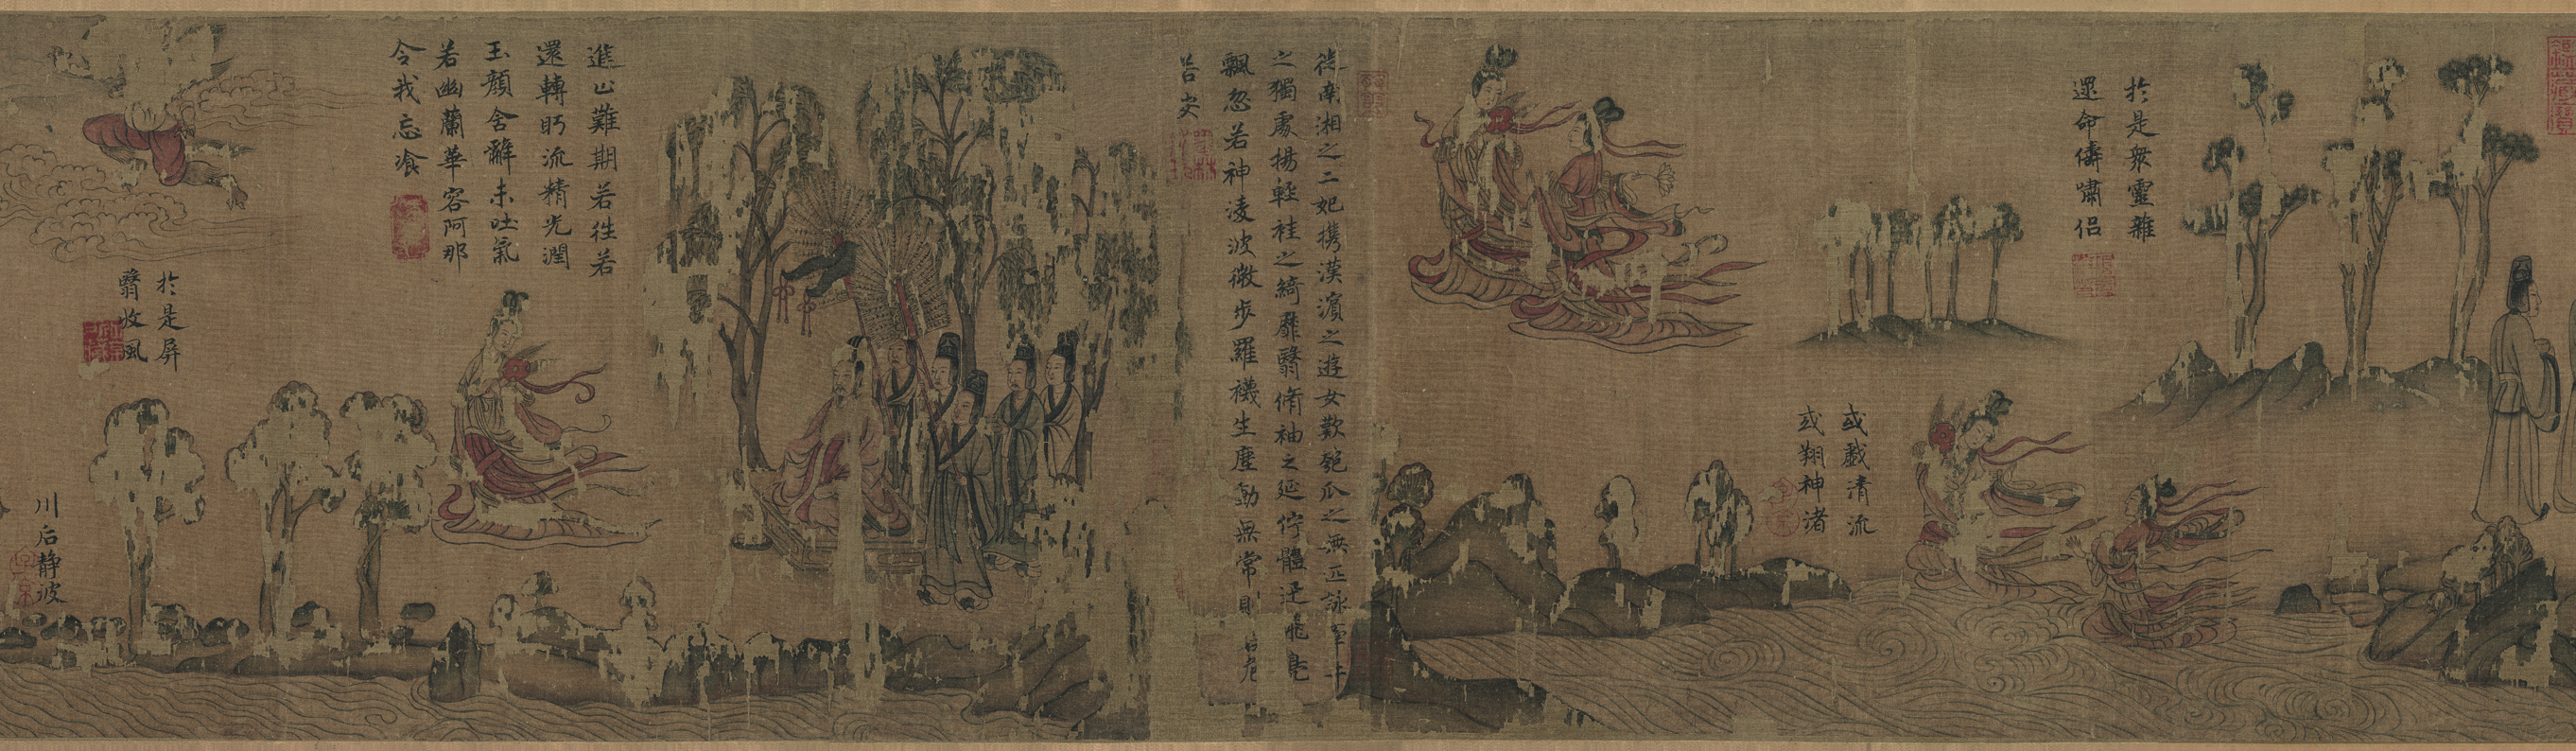 於是眾靈雜
還命儔嘯侶
或戲清流
或翔神渚
從南湘之二妃携漢濱之遊女歎匏瓜之無匹詠
之獨處揚輕袿之綺靡翳脩袖之延佇體迅飛鳧
飄忽若神凌波微步羅襪生塵動無常則
若安
進止難期若往若
還轉眄流精光潤
玉顏含辭未吐氣
若幽蘭華容阿那
令我忘飡
於是屏
翳收風
川后静波